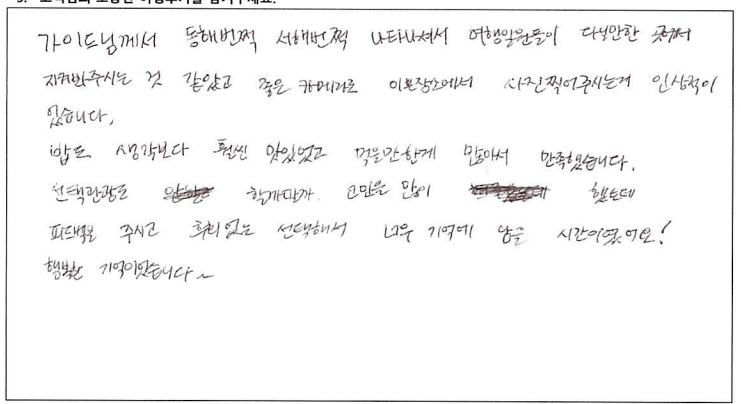 5. 고객님의 소중한 여행후기를 남겨주세요.
가이드님께서 동해번쩍 서해번쩍 나타나셔서 여행일원들이 다닐만한 곳에서
지켜봐주시는 것 같았고 좋은 카메라로 이쁜장소에서 사진찍어주시는게 인상적이
었습니다.
밥도 생각보다 훨씬 맛있었고 먹을만한게 많아서 만족했습니다.
선택관광도 할까말까 고민을 많이 했는데
피드백을 주시고 후회없는 선택해서 너무 기억에 남을 시간이였어요!
행복한 기억이었습니다~